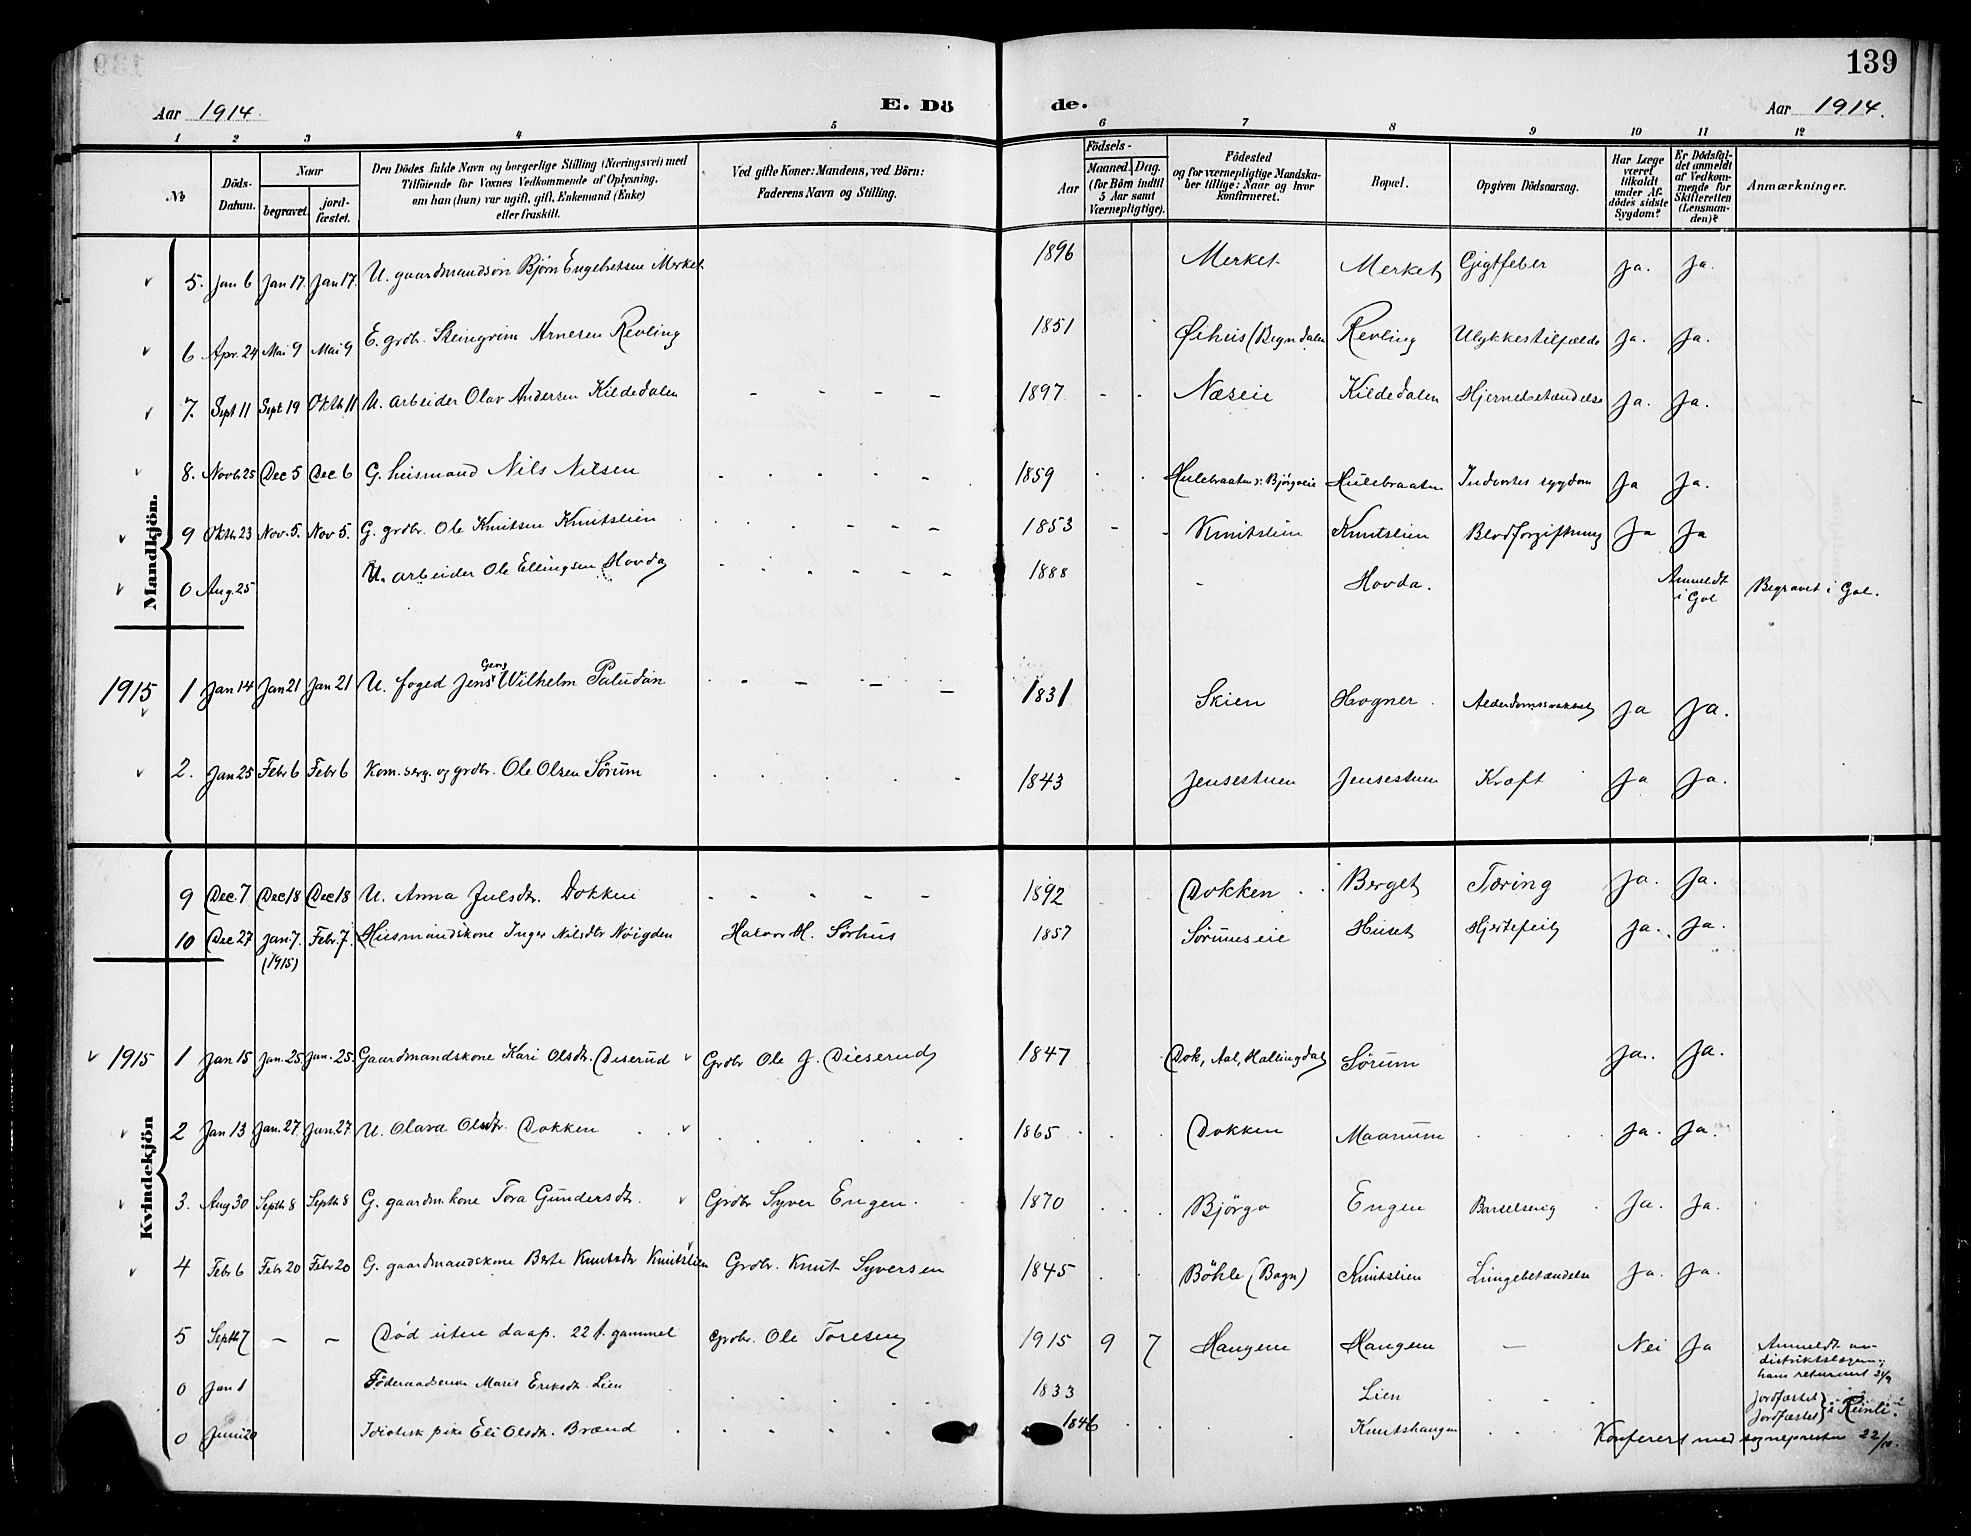 139
Aar 1914. E. Dö de. Aar 1914.
1 2 3 4 5 6 7 8 9 10 11 12
No. Döds-Datum. Naar begravet. jord-fæstet. Den Dödes fulde Navn og borgerlige Stilling (Næringsvei) med Tilföiende for Voxnes Vedkommende af Oplysning, om han (hun) var ugift, gift, Enkemand (Enke) eller fraskilt. Ved gifte Koner: Mandens, ved Börn: Faderens Navn og Stilling. Födsels- Aar Maaned. Dag. (for Börn indtil 5 Aar samt Værnepligtige). Födested og for værnepligtige Mandska-ber tillige: Naar og hvor konfirmeret. Bopæl. Opgiven Dödsaarsag. Har Læge været tilkaldt under Af-dödes sidste Sygdom? Er Dödsfal-det anmeldt af Vedkom-mende for Skifteretten (Lensman-den)? Anmærkninger.
Mandkjön.
5. Jan 6 Jan 17. Jan 17. U. gaardmandsön Bjørn Engebretsen Merket 1896 Merket Merket Gigtfeber Ja. Ja.
6 Apr. 24 Mai 9 Mai 9 E. grdbr. Steingrim Arnesen Revling 1851 Øihus (Begndalen Revling Ulykkestilfælde Ja. Ja.
7. Sept 11 Sept 19 Oktb 11 U. arbeider Olav Andersen Kildedalen - - - - 1897 - - Næseie Kildedalen Hjernebetændelse Ja. Ja.
8. Novb 25 Dec 5 Dec 6 G. husmand Nils Nilsen 1859 Hulebraaten Indvortes sygdom Ja Ja.
9 Oktb. 23 Nov. 5. Nov 5. G. grdbr. Ole Knutsen Knutslien 1853 - - Knutslien Knutslien Blodforgiftning Ja Ja
0 Aug. 25 U. arbeider Ole Ellingsen Hovda 1888 - Hovda. Anmeldt i Gol Begravet i Gol.
1915 1 Jan 14 Jan 21 Jan 21 U. foged Jens Georg Wilhelm Paludan 1831 Skien Hogner. Alderdomssvakhet Ja Ja.
2. Jan 25 Febr 6 Febr 6 Kom. serg. og grdbr. Ole Olsen Sørum 1843 Jensestuen Jensestuen Kræft Ja Ja.
Kvindekjön
9 Dec. 7 Dec 18 Dec 18 U. Anna Julsdtr. Dokken 1892 Dokken Berget Tæring Ja. Ja.
10 Dec 27 Jan. 7. (1915) Febr. 7. Husmandskone Inger Nilsdtr Nöigden Halvor H. Sørhus 1857 Sørumseie Huset Hjertefeil Ja. Ja.
1915 1 Jan 15 Jan. 25. Jan. 25. Gaardmandskone Kari Olsdtr. Dieserud Grdbr Ole J. Dieserud 1847 Dok, Aal, Hallingdal Sørum Ja. Ja.
2 Jan 13 Jan. 27 Jan. 27 U. Olava Olsdtr. Dokken 1865 Dokken Maanum Ja. Ja.
3. Aug 30 Septb 8 Septb 8 G. gaardm.kone Tora Gundersdtr. Grdbr Syver Engen. 1870 Björgo Engen Barselseng Ja. Ja.
4 Febr 6 Febr 20 Febr 20 G. gaardmandskone Berte Knutsdtr Knutslien Grdbr. Knut Syversen 1845 Böhle (Bagn) Knutslien Lungebetændelse Ja. Ja.
5 Septb 7 - - Død uten daap. 22 t. gammel Grdbr. Ole Toresen 1915 9 7 Haugene Haugene - Nei Ja Anmeldt distriktslægen, ham returnert
0 Jan 1 Föderaadsenke Marit Eriksdtr. Lien 1833 Lien Jordfæstet } i Reinli.
0 Juni 20 Idiotisk pike Eli Olsdtr. Brænd 1846 Knutshaugen Jordfæstet
Konferert med sognepresten 22/10.